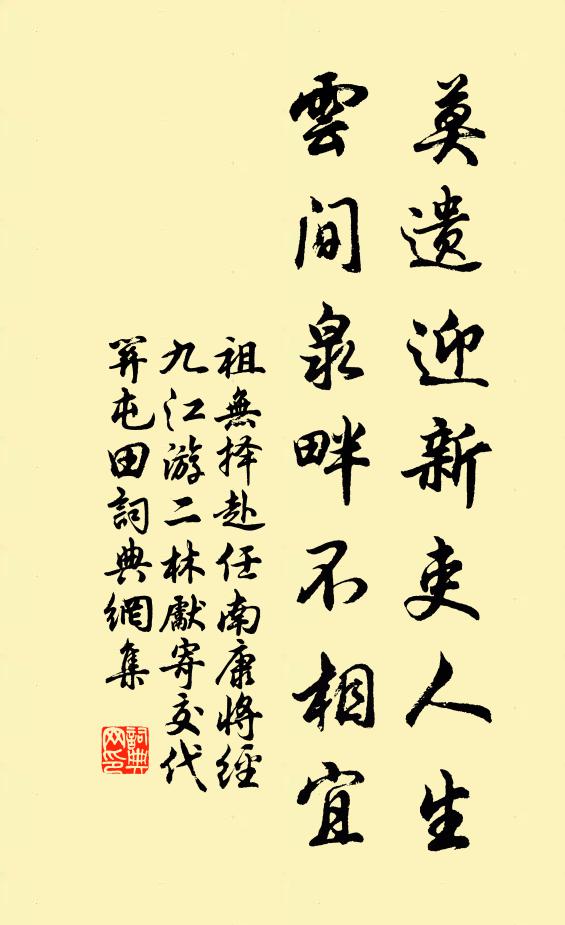 莫遗迎新吏人生
雲间泉畔不相宜
祖無择赴任南康将經
九江游二林獻寄交代
羿屯田詞典網集
詞典网印